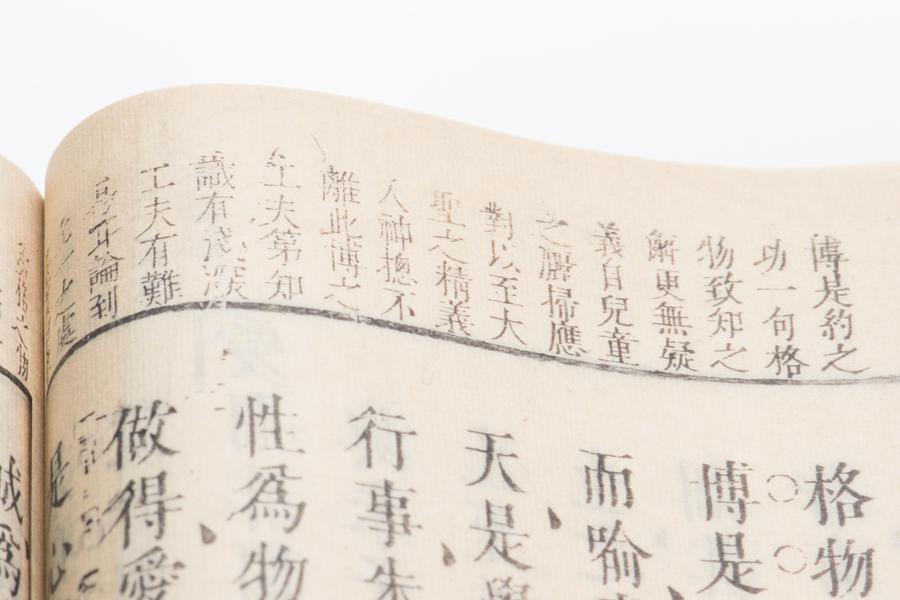 博是約之
功一句格
物致知之
解更無疑
義自兒童
之灑掃應
對以至大
聖之精義
入神摠不
離此博文
工夫第知
識有淺深
工夫有難
論到
處
格物
博是
而喻
天是
行事朱
性爲物
做得愛